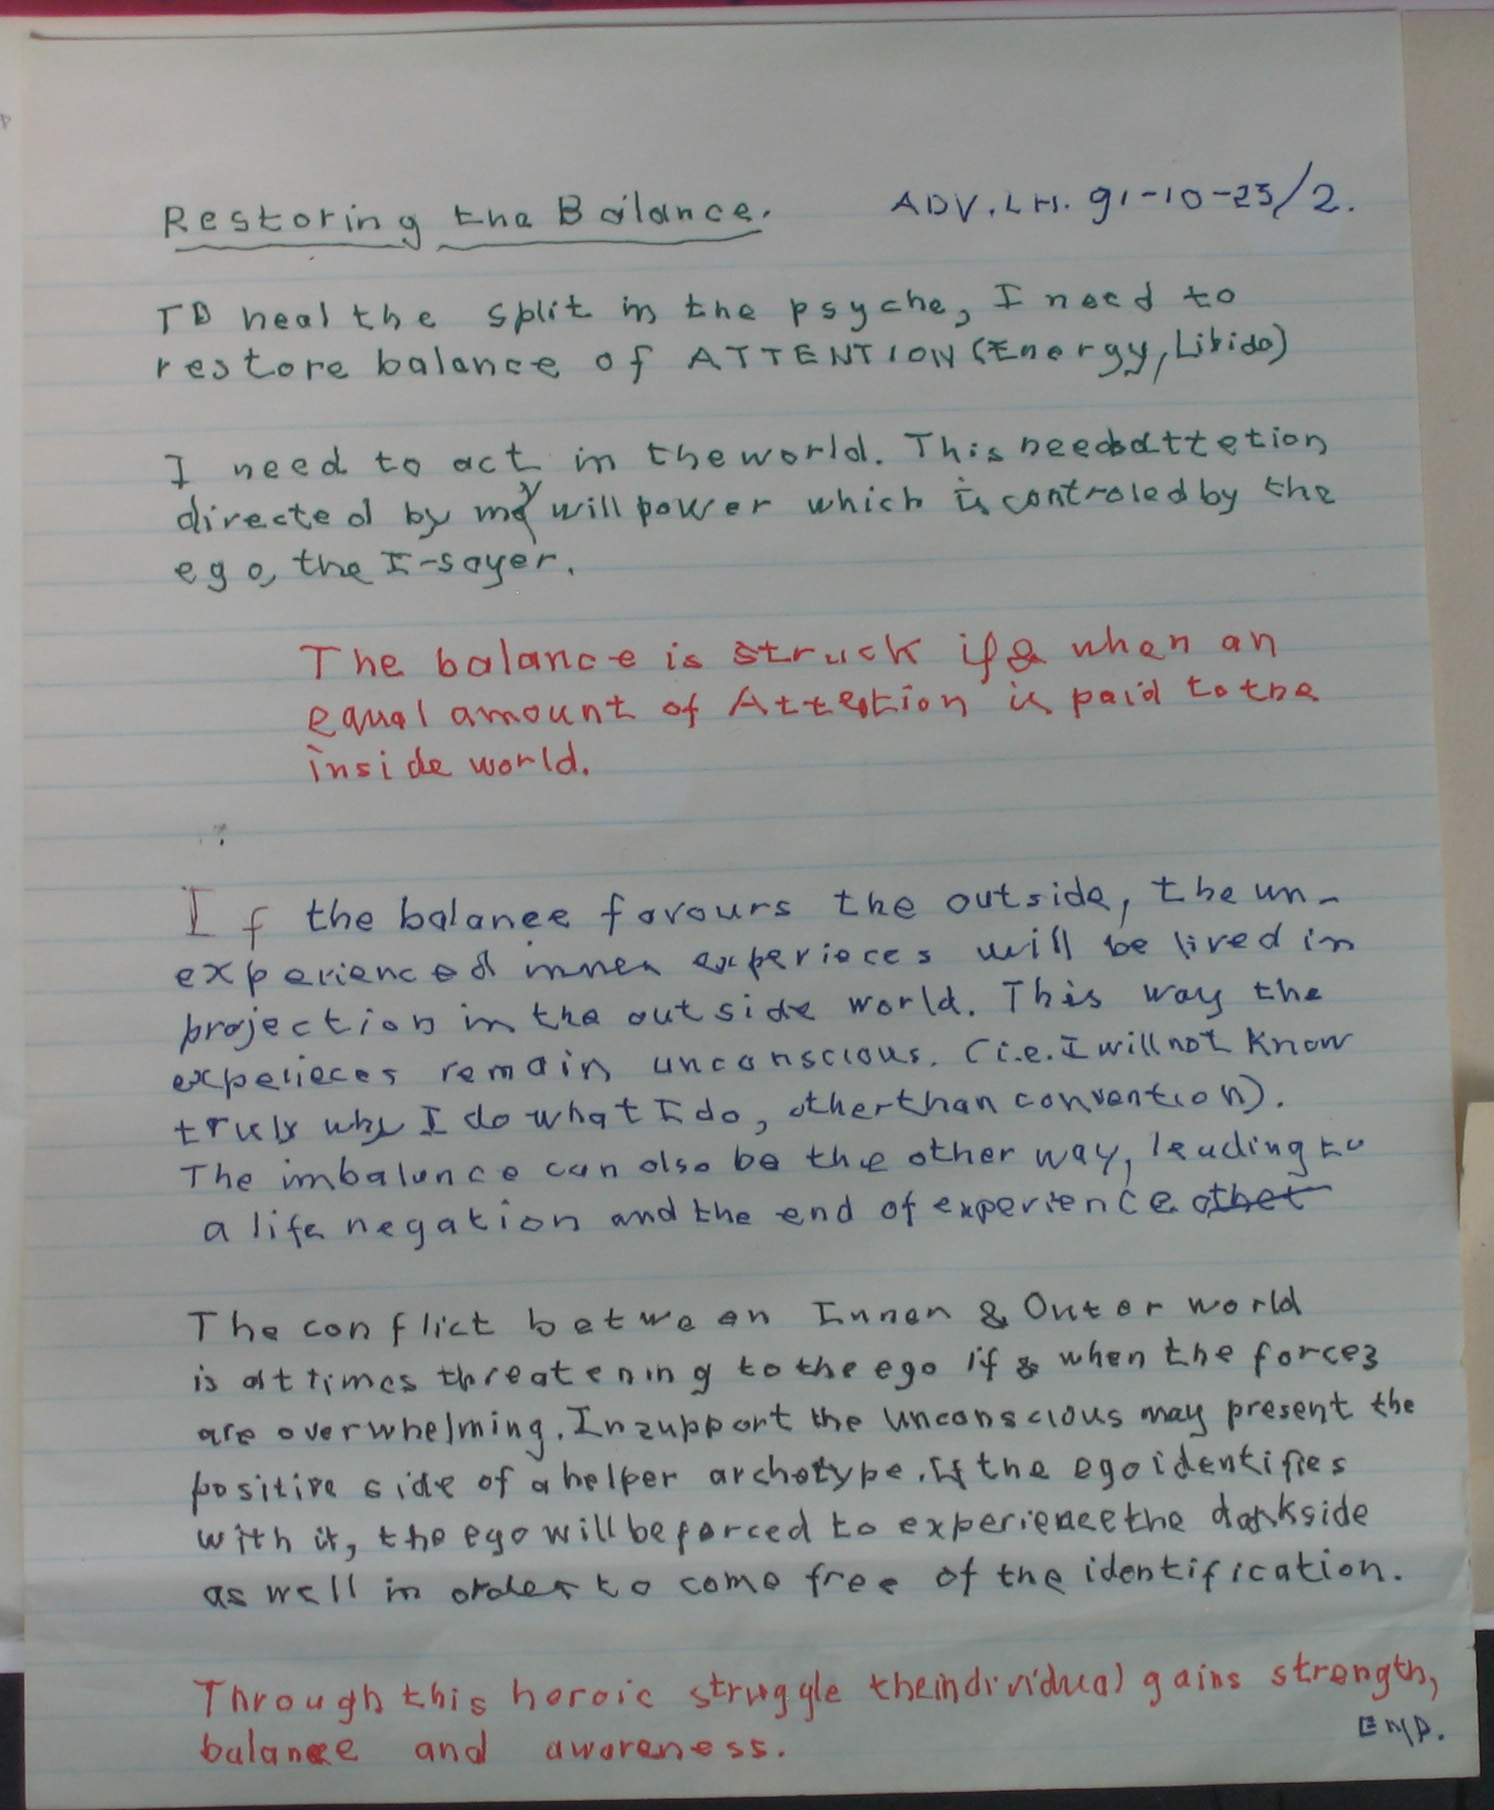 Restoring the Balance. ADV. LH. 91-10-25/2.
To heal the split in the psyche, I need to
restore balance of ATTENTION (Energy, Libido)
I need to act in the world. This needs attetion
directed by my will power which is controled by the
ego, the I-sayer.
The balance is struck if & when an
equal amount of Attention is paid to the
inside world.
If the balance favours the outside, the un-
experienced inner experieces will be lived in
projection in the outside world. This way the
experieces remain unconscious. (i.e. I will not know
truly why I do what I do, other than convention).
The imbalance can also be the other way, leading to
a life negation and the end of experience other
The conflict between Inner & Outer world
is at times threatening to the ego if & when the forces
are overwhelming. In support the unconscious may present the
positive side of a helper archetype. If the ego identifies
with it, the ego will be forced to experience the dark side
as well in order to come free of the identification.
Through this heroic struggle the individual gains strength,
balance and awareness. END.